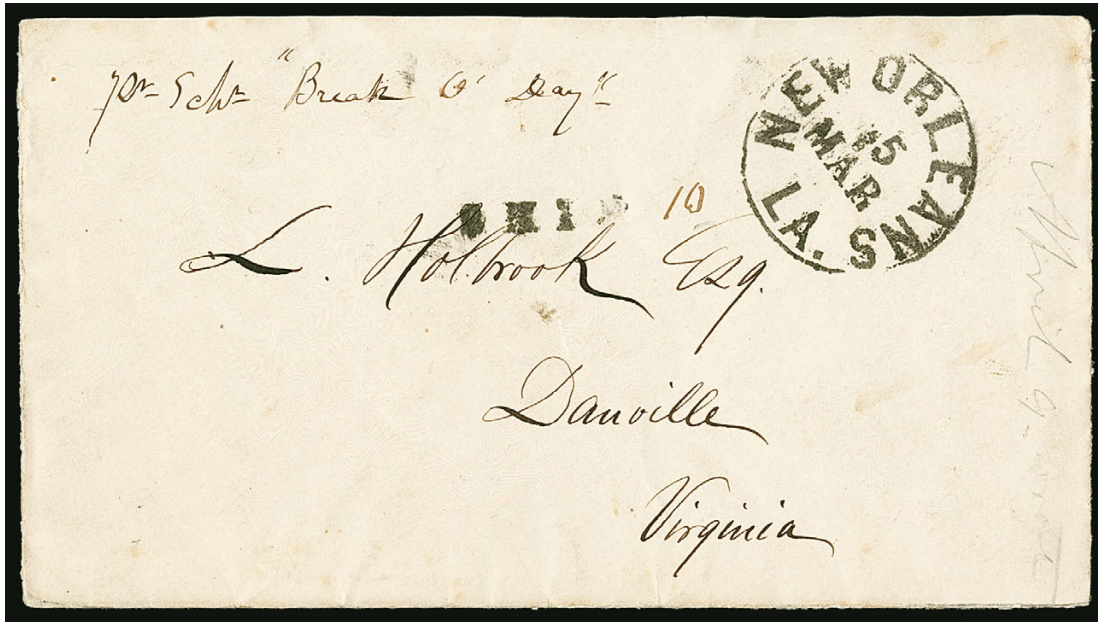 pr Schr "Break O' Day"
NEW ORLEANS LA.
15
MAR
SHIP 10
L. Holbrook Esq.
Danville
Virginia
April 9